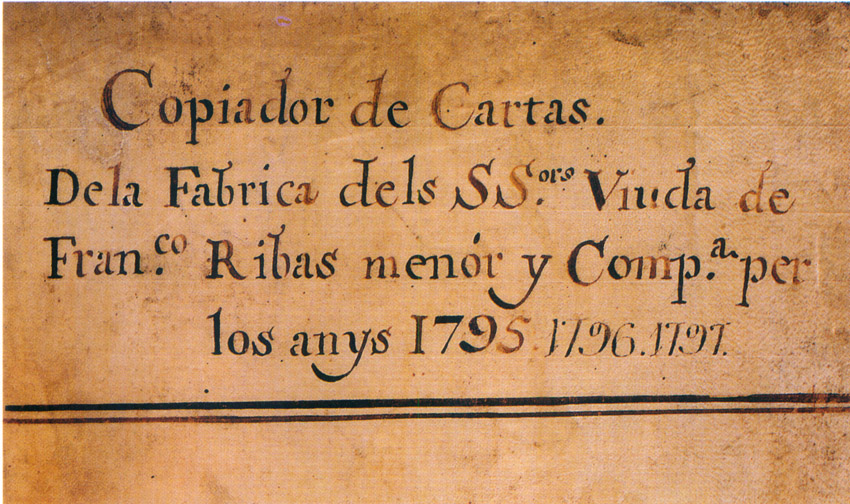 Copiador de Cartas.
Dela Fabrica dels SS.ors Viuda de
Fran.co Ribas menór y Comp.a per
los anys 1795.1796.1797.